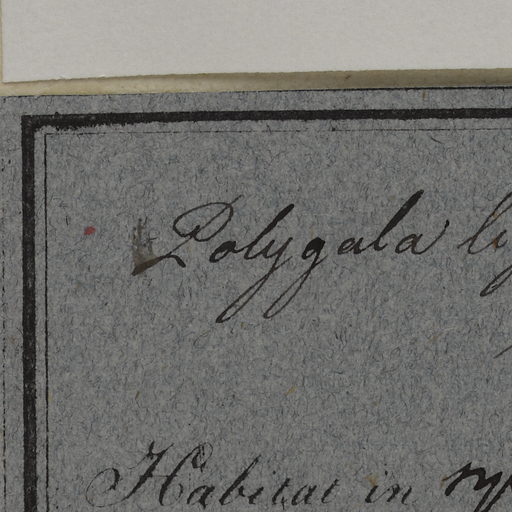 Polygala
Habitat in